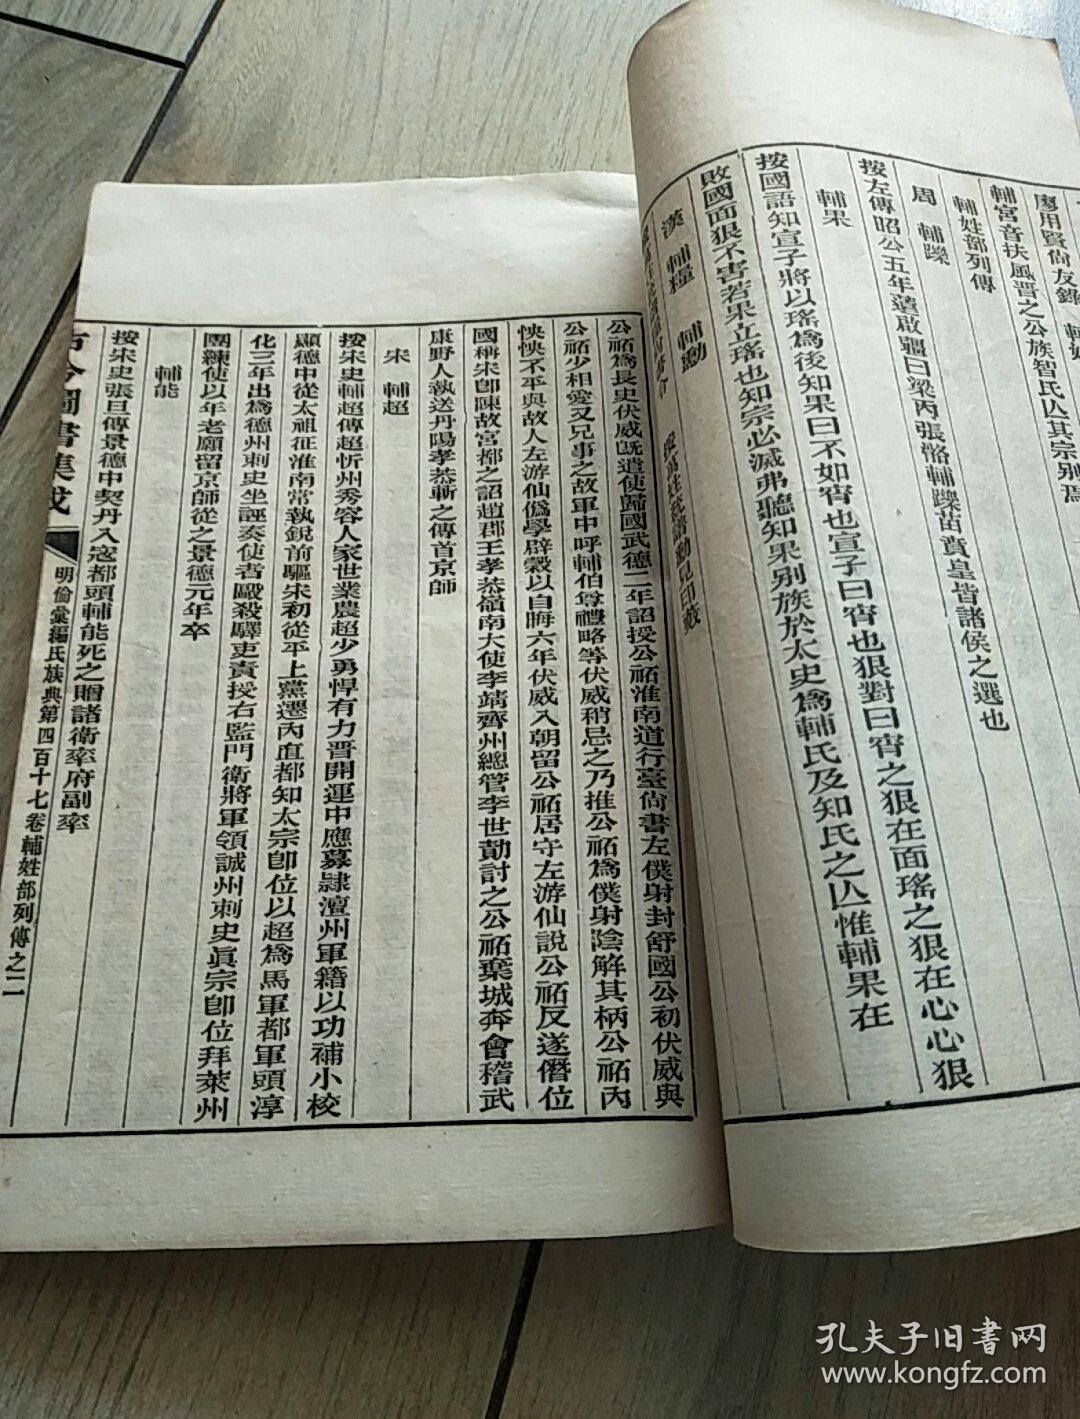 廖用賢尚友錄
輔宮音扶風晋之公族智氏亾其宗別爲
輔姓部列傳
周 輔躒
按左傳昭公五年薳啟疆曰梁丙張骼輔躒苗賁皇皆諸侯之選也
輔果
按國語知宣子將以瑤爲後知果曰不如宵也宣子曰宵也狠對曰宵之狠在面瑤之狠在心心狠
敗國面狠不害若果立瑤也知宗必滅弗聽知果別族於太史爲輔氏及知氏之亾惟輔果在
漢 輔糧 輔勳
公祏爲長史伏威旣遣使歸國武德二年詔授公祏淮南道行臺尙書左僕射封舒國公初伏威與
公祏少相愛又兄事之故軍中呼輔伯尊禮略等伏威稍忌之乃推公祏爲僕射陰解其柄公祏內
怏怏不平與故人左游仙僞學辟穀以自晦六年伏威入朝留公祏居守左游仙說公祏反遂僭位
國稱宋卽陳故宮都之詔趙郡王孝恭嶺南大使李靖齊州總管李世勣討之公祏棄城奔會稽武
康野人執送丹陽孝恭斬之傳首京師
宋 輔超
按宋史輔超傳超忻州秀容人家世業農超少勇悍有力晋開運中應募隸澶州軍籍以功補小校
顯德中從太祖征淮南常執銳前驅宋初從平上黨遷內直都知太宗卽位以超爲馬軍都軍頭淳
化三年出爲德州刺史坐誣奏使者毆殺驛吏責授右監門衛將軍領誠州刺史眞宗卽位拜萊州
團練使以年老願留京師從之景德元年卒
輔能
按宋史張旦傳景德中契丹入寇都頭輔能死之贈諸衛率府副率
古今圖書集成
明倫彙編氏族典第四百十七卷輔姓部列傳之二
孔夫子旧書网
www.kongfz.com